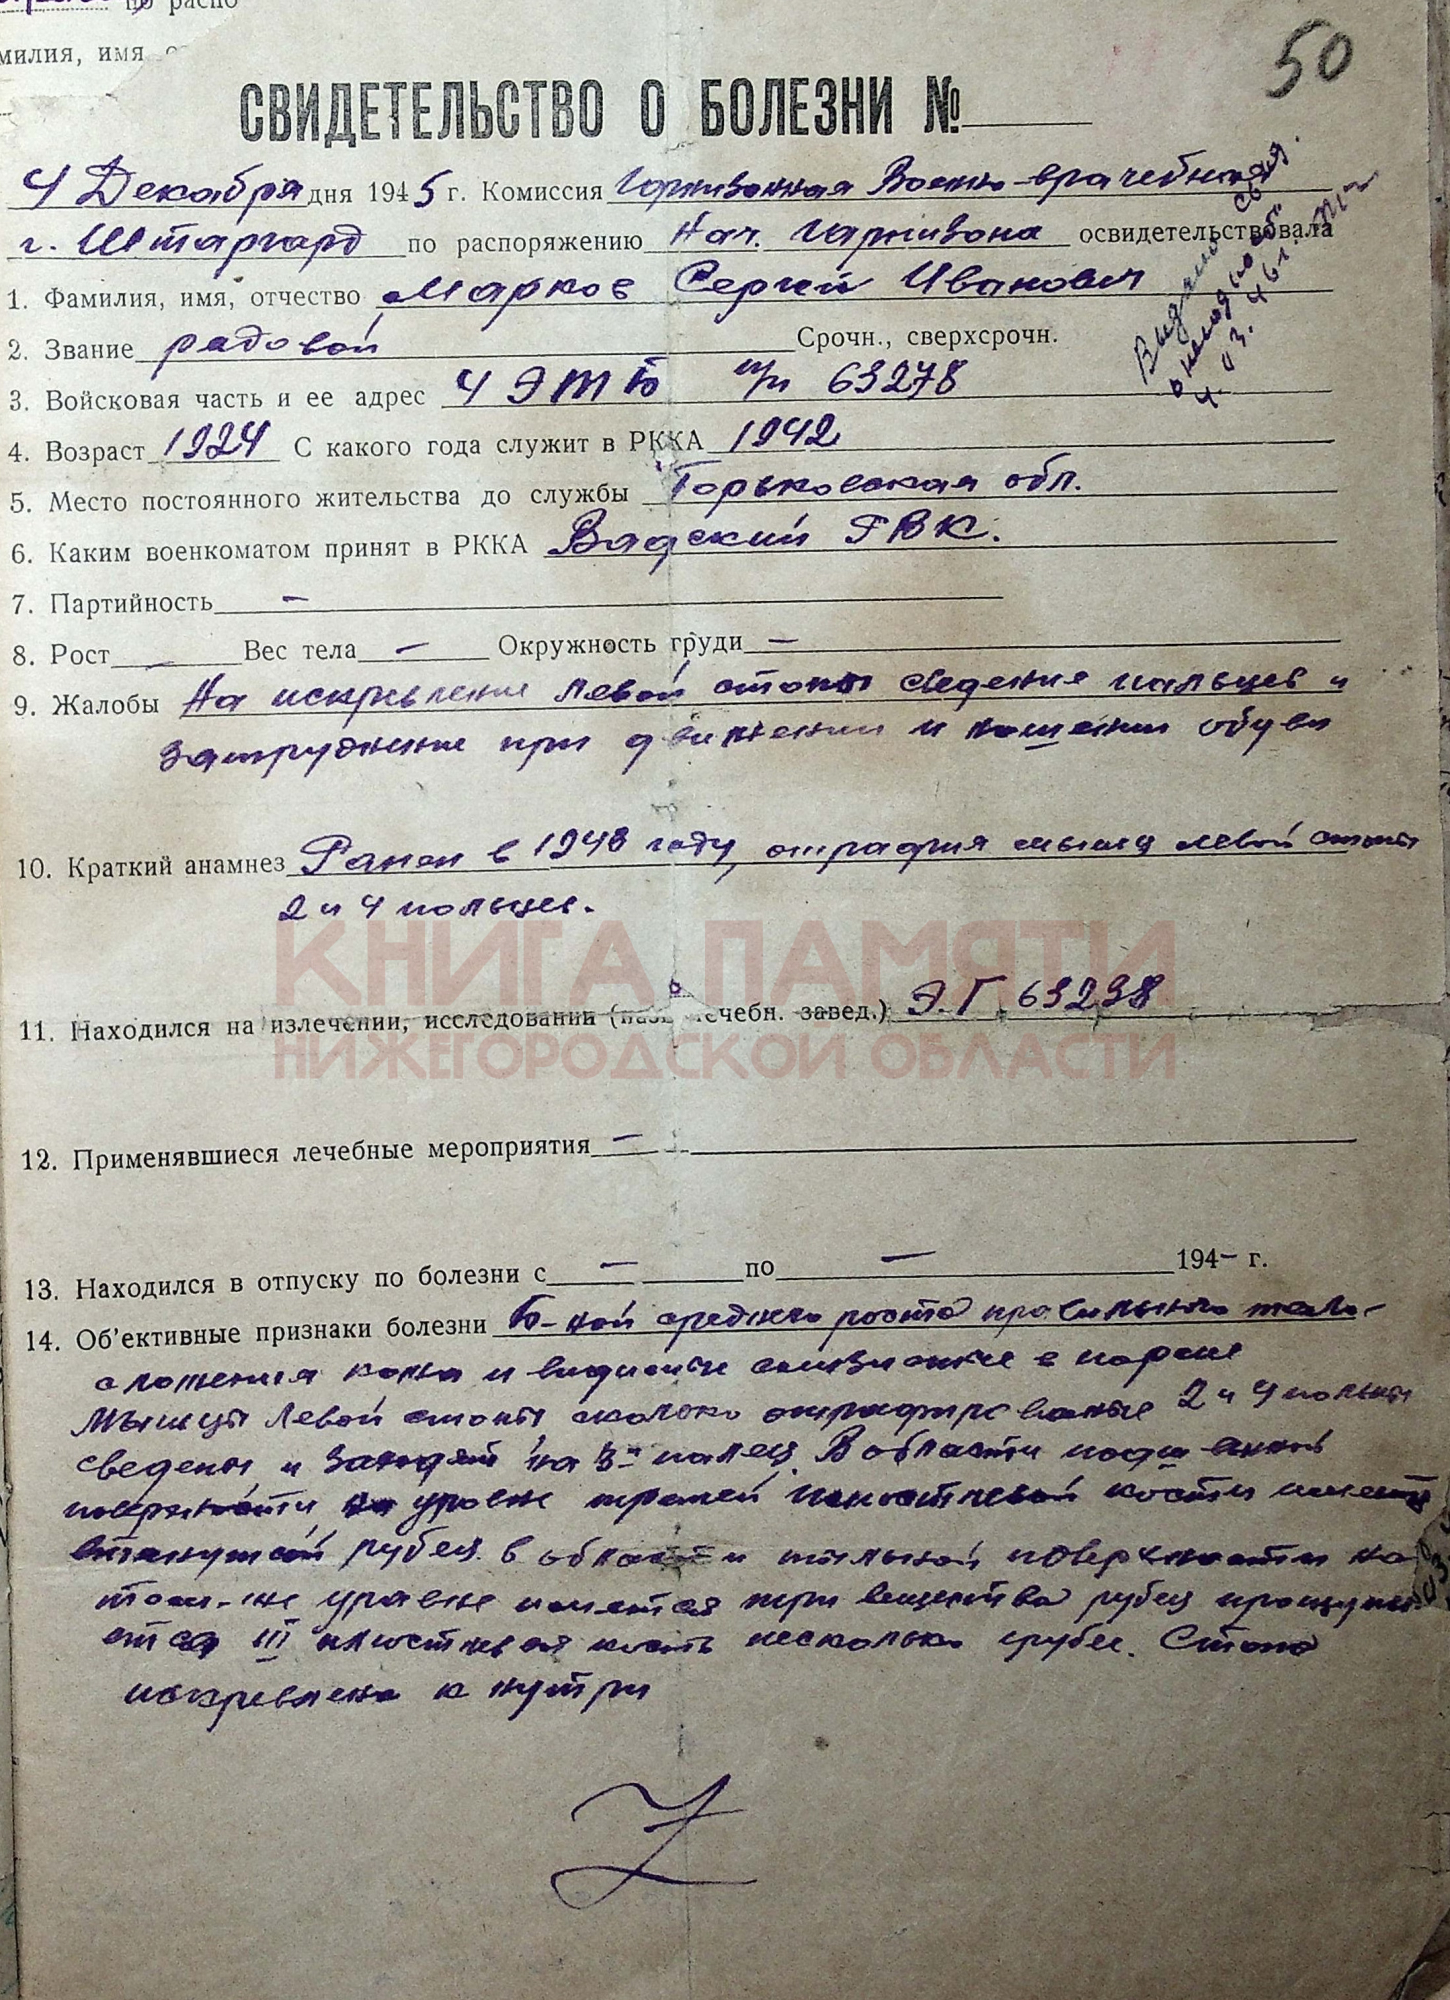 по распо
милия, имя
50
СВИДЕТЕЛЬСТВО О БОЛЕЗНИ №
4 Декабря дня 1945 г. Комиссия Гарнизонная Военно-врачебная
г. Штаргард по распоряжению Нач. Гарнизона освидетельствовала
1. Фамилия, имя, отчество Марков Сергей Иванович
2. Звание рядовой Срочн., сверхсрочн.
3. Войсковая часть и ее адрес 4 ЭТТБ п/п 63278
4. Возраст 1924 С какого года служит в РККА 1942
5. Место постоянного жительства до службы Горьковская обл.
6. Каким военкоматом принят в РККА Вадский РВК.
7. Партийность —
8. Рост — Вес тела — Окружность груди —
9. Жалобы На искривление левой стопы сведение пальцев и
затруднение при движении и ношении обуви
10. Краткий анамнез Ранен в 1943 году, отрафия мышц левой стопы
2 и 4 пальцев.
КНИГА ПАМЯТИ
11. Находился на излечении, исследовании (назв. лечебн. завед.) Э.Г. 63298
НИЖЕГОРОДСКОЙ ОБЛАСТИ
12. Применявшиеся лечебные мероприятия —
13. Находился в отпуску по болезни с — по — 194— г.
14. Об'ективные признаки болезни Б-ной среднего роста правильного тело-
сложения кожа и видимые слизистые в норме
Мышцы левой стопы атрафированые 2 и 4 пальцы
сведены и заходят на 3й палец. В области подошвенной
поверхности на уровне третей плюстневой кости имеется
втянутый рубец. в области тыльной поверхности на
том-же уровне имеется рубец прощупыва-
ется III плюстневая кость несколько грубее. Стопа
искревлена к нутри
Выдано св
о болезни
4.03.46г.